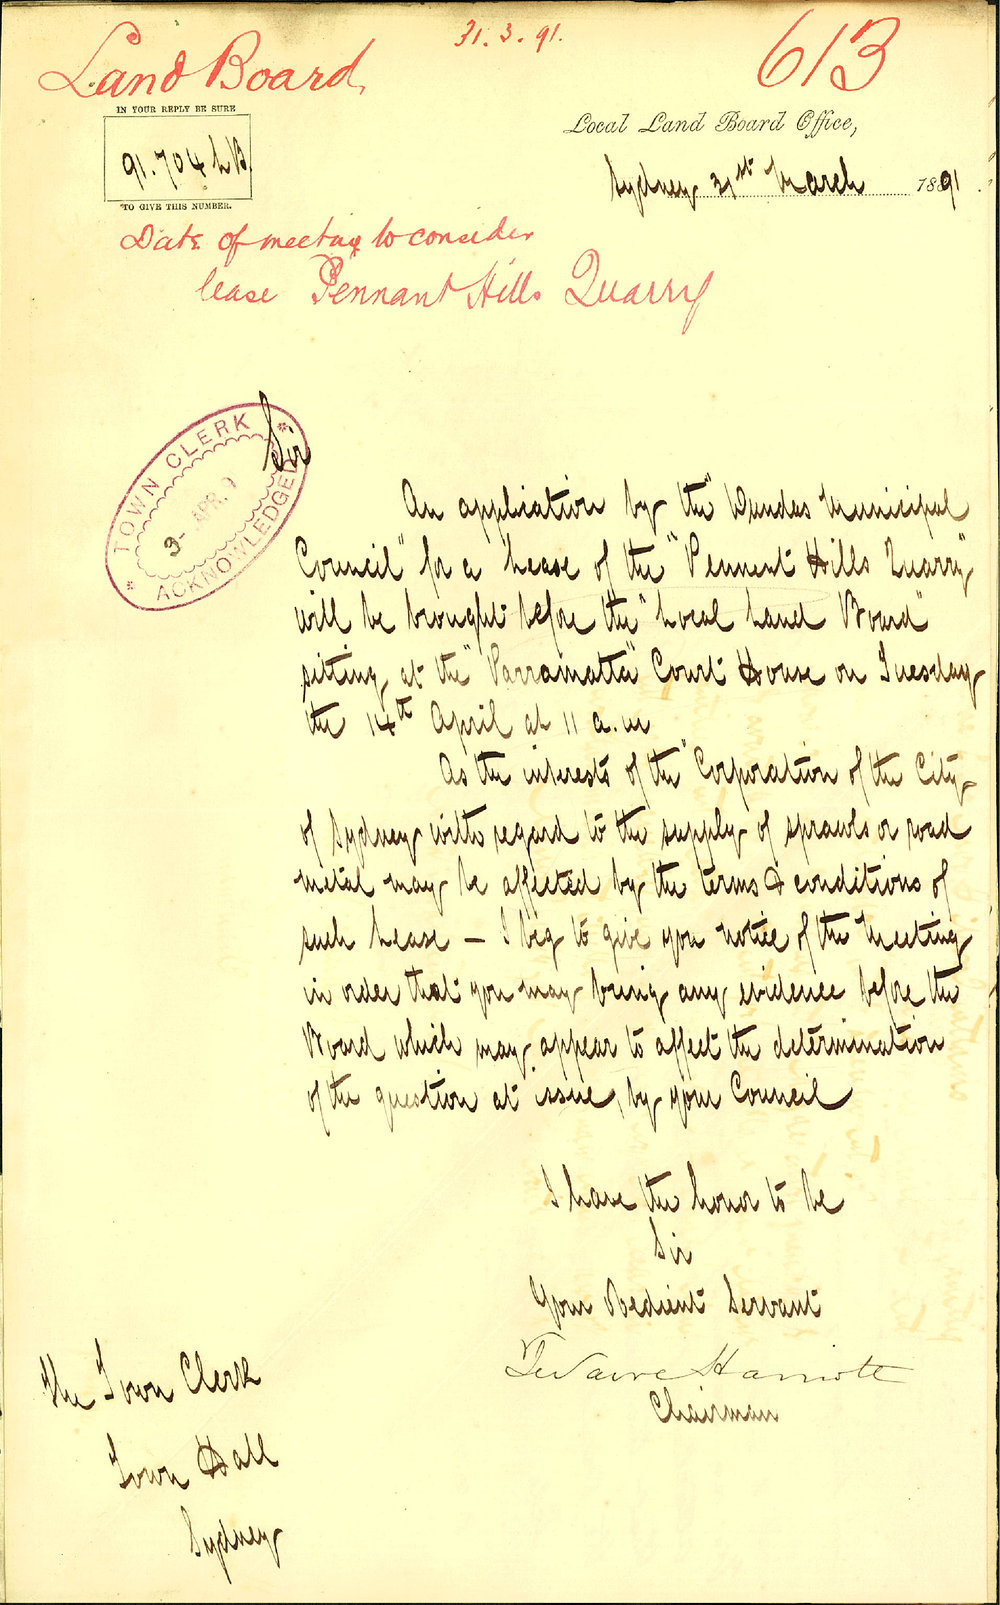 31.3.91.
613
Land Board
IN YOUR REPLY BE SURE
91.704 LB.
TO GIVE THIS NUMBER.
Local Land Board Office,
Sydney 31st March 1891
Date of meeting to consider
lease Pennant Hills Quarry
TOWN CLERK
3- APR. 9
ACKNOWLEDGED
Sir
An application by the "Dundas Municipal
Council" for a Lease of the "Pennent Hills Quarry"
will be brought before the "Local Land Board"
sitting at the "Parramatta" Court House on Tuesday
the 14th April at 11 a.m
As the interests of the "Corporation of the City
of Sydney with regard to the supply of sprawls or road
metal may be affected by the terms & conditions of
such Lease – I beg to give you notice of the Meeting
in order that you may bring any evidence before the
Board which may appear to affect the determination
of the question at issue, by your Council
I have the honor to be
Sir
Your Obedient Servant
Chairman
The Town Clerk
Town Hall
Sydney